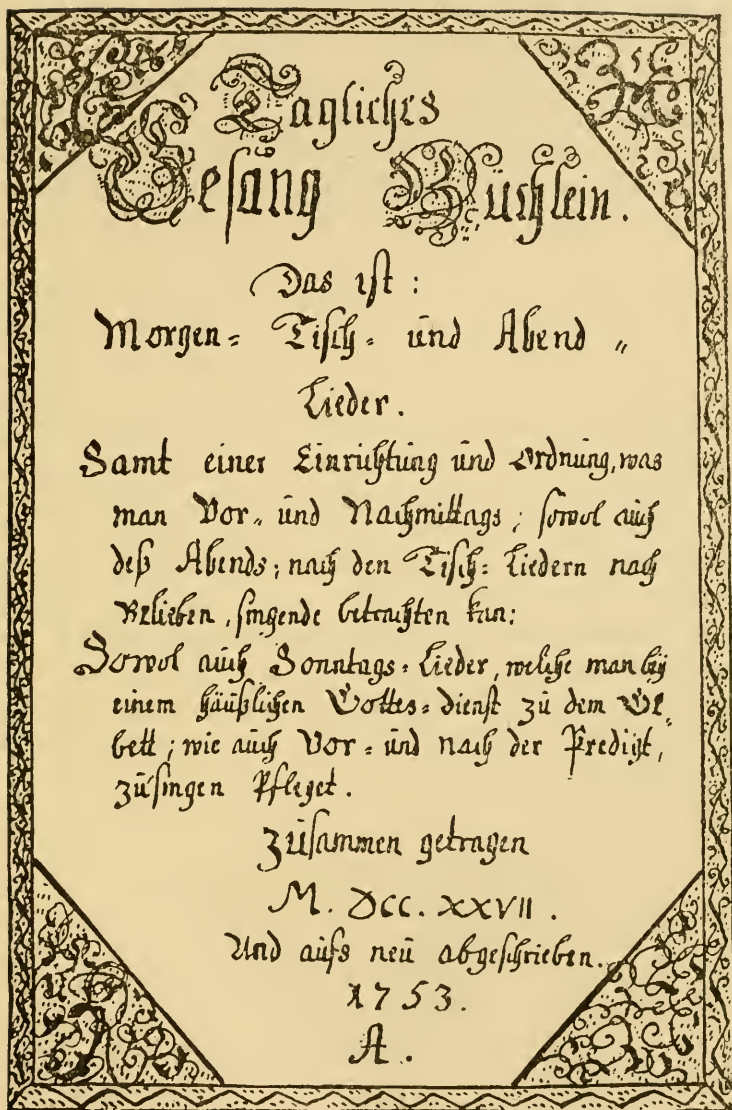 Tagliches
Gesang Büchlein.
Das ist:
Morgen= Tisch= und Abend„
Lieder.
Samt einer Einrichtung und Ordnung, was
man Vor„ und Nachmittags; sowol auch
deß Abends; nach den Tisch= Liedern nach
Belieben, singende betrachten kan:
Sowol auch Sonntags= Lieder, welche man bey
einem häußlichen Gottes= dienst zu dem Ge„
bett; wie auch Vor= und nach der Predigt,
zu singen Pfleget.
Zusammen getragen
M. DCC. XXVII.
Und aufs neu abgeschrieben.
1753.
A.